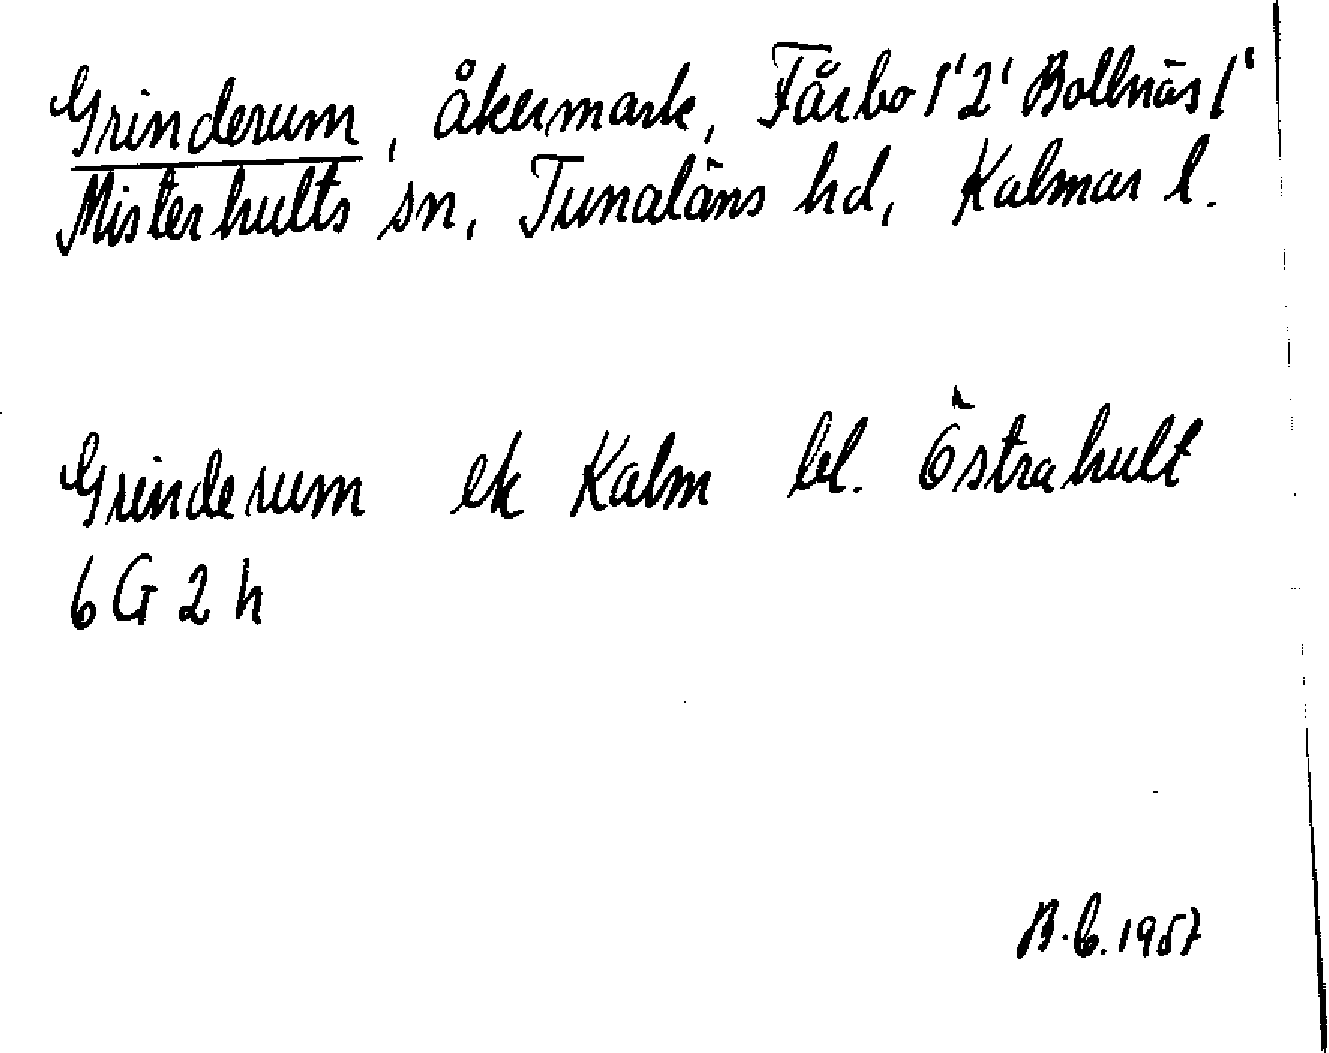 Grinderum, åkermark, Fårbo 1'2' Bollnäs 1'
Misterhults sn, Tunaläns hd, Kalmar l.
Grinderum ek Kalm bl. Östrahult
6 G 2 h
B.C. 1957